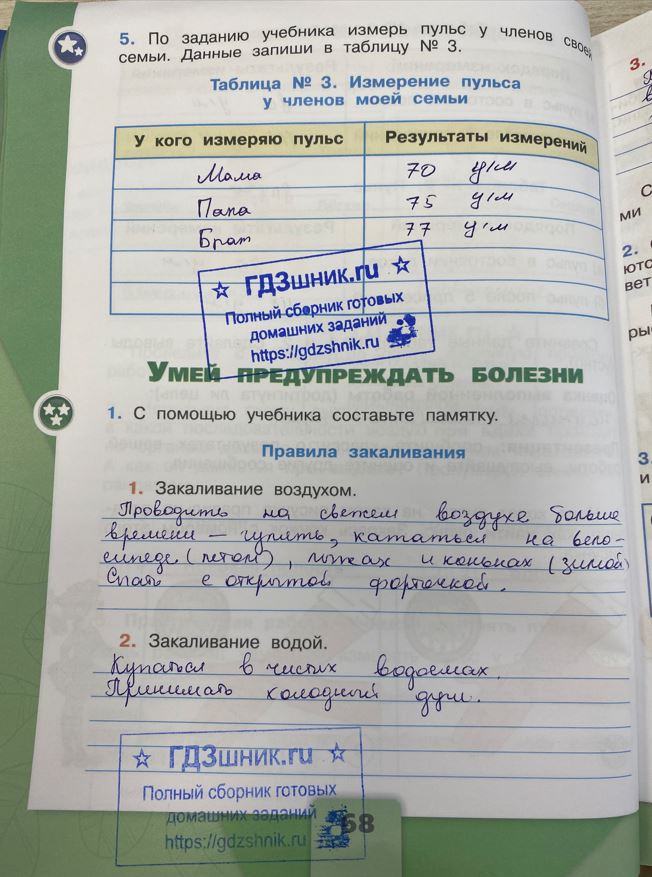 5. По заданию учебника измерь пульс у членов своей
семьи. Данные запиши в таблицу № 3.
Таблица № 3. Измерение пульса
у членов моей семьи
У кого измеряю пульс Результаты измерений
Мама 70 у/м
Папа 75 у/м
Брат 77 у/м
ГДЗшник.ru
Полный сборник готовых
домашних заданий
https://gdzshnik.ru
УМЕЙ ПРЕДУПРЕЖДАТЬ БОЛЕЗНИ
1. С помощью учебника составьте памятку.
Правила закаливания
1. Закаливание воздухом.
Проводить на свежем воздухе больше
времени – гулять, кататься на вело-
сипеде (летом), лыжах и коньках (зимой)
Спать с открытой форточкой.
2. Закаливание водой.
Купаться в чистых водоемах.
Принимать холодный душ.
ГДЗшник.ru
Полный сборник готовых
домашних заданий
https://gdzshnik.ru
68
3.
С
ми
2.
ют
вет
ры
3.
и